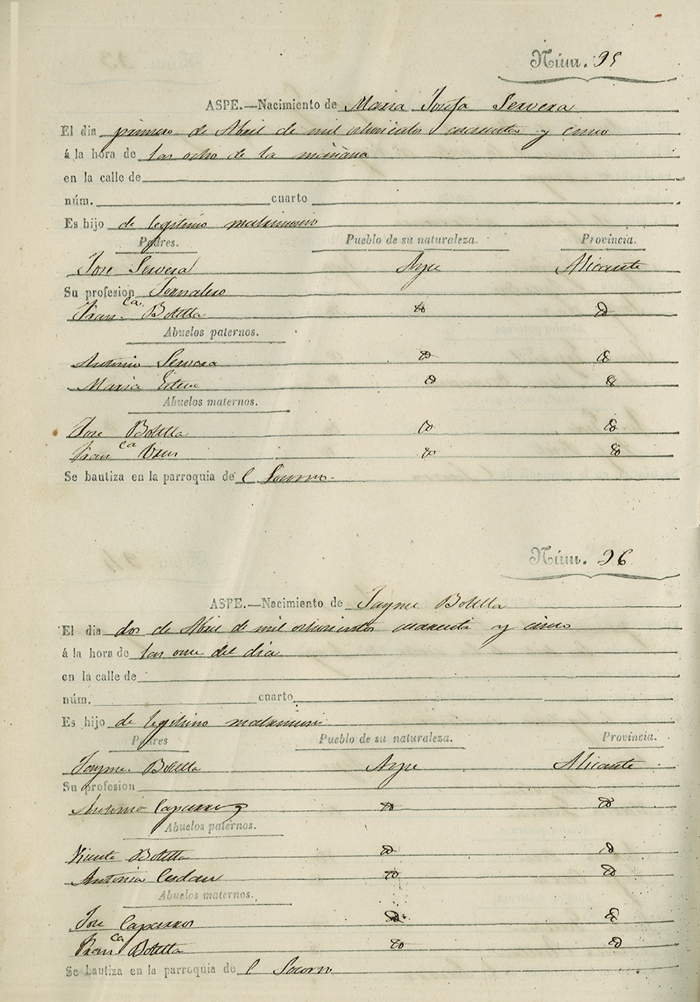 Núm. 95
ASPE.—Nacimiento de Maria Josefa Servera
El dia primero de Abril de mil ochocientos cuarenta y cinco
á la hora de las ocho de la mañana
en la calle de
núm. cuarto
Es hijo de legitimo matrimonio
Padres. Pueblo de su naturaleza. Provincia.
Jose Servera Aspe Alicante
Su profesion Jornalero
Fran.ca Botella
Abuelos paternos.
Antonio Servera
Maria
Abuelos maternos.
Jose Botella
Fran.ca
Se bautiza en la parroquia de l Socorro.
Núm. 96
ASPE.—Nacimiento de Jayme Botella
El dia dos de Abril de mil ochocientos cuarenta y cinco
á la hora de las once del dia
en la calle de
núm. cuarto
Es hijo de legitimo
Padres Pueblo de su naturaleza. Provincia.
Jayme Botella Aspe Alicante
Su profesion
Caparros
Abuelos paternos.
Vicente Botella
Antonia
Abuelos maternos.
Jose Caparros
Fran.ca Botella
Se bautiza en la parroquia de l Socorro